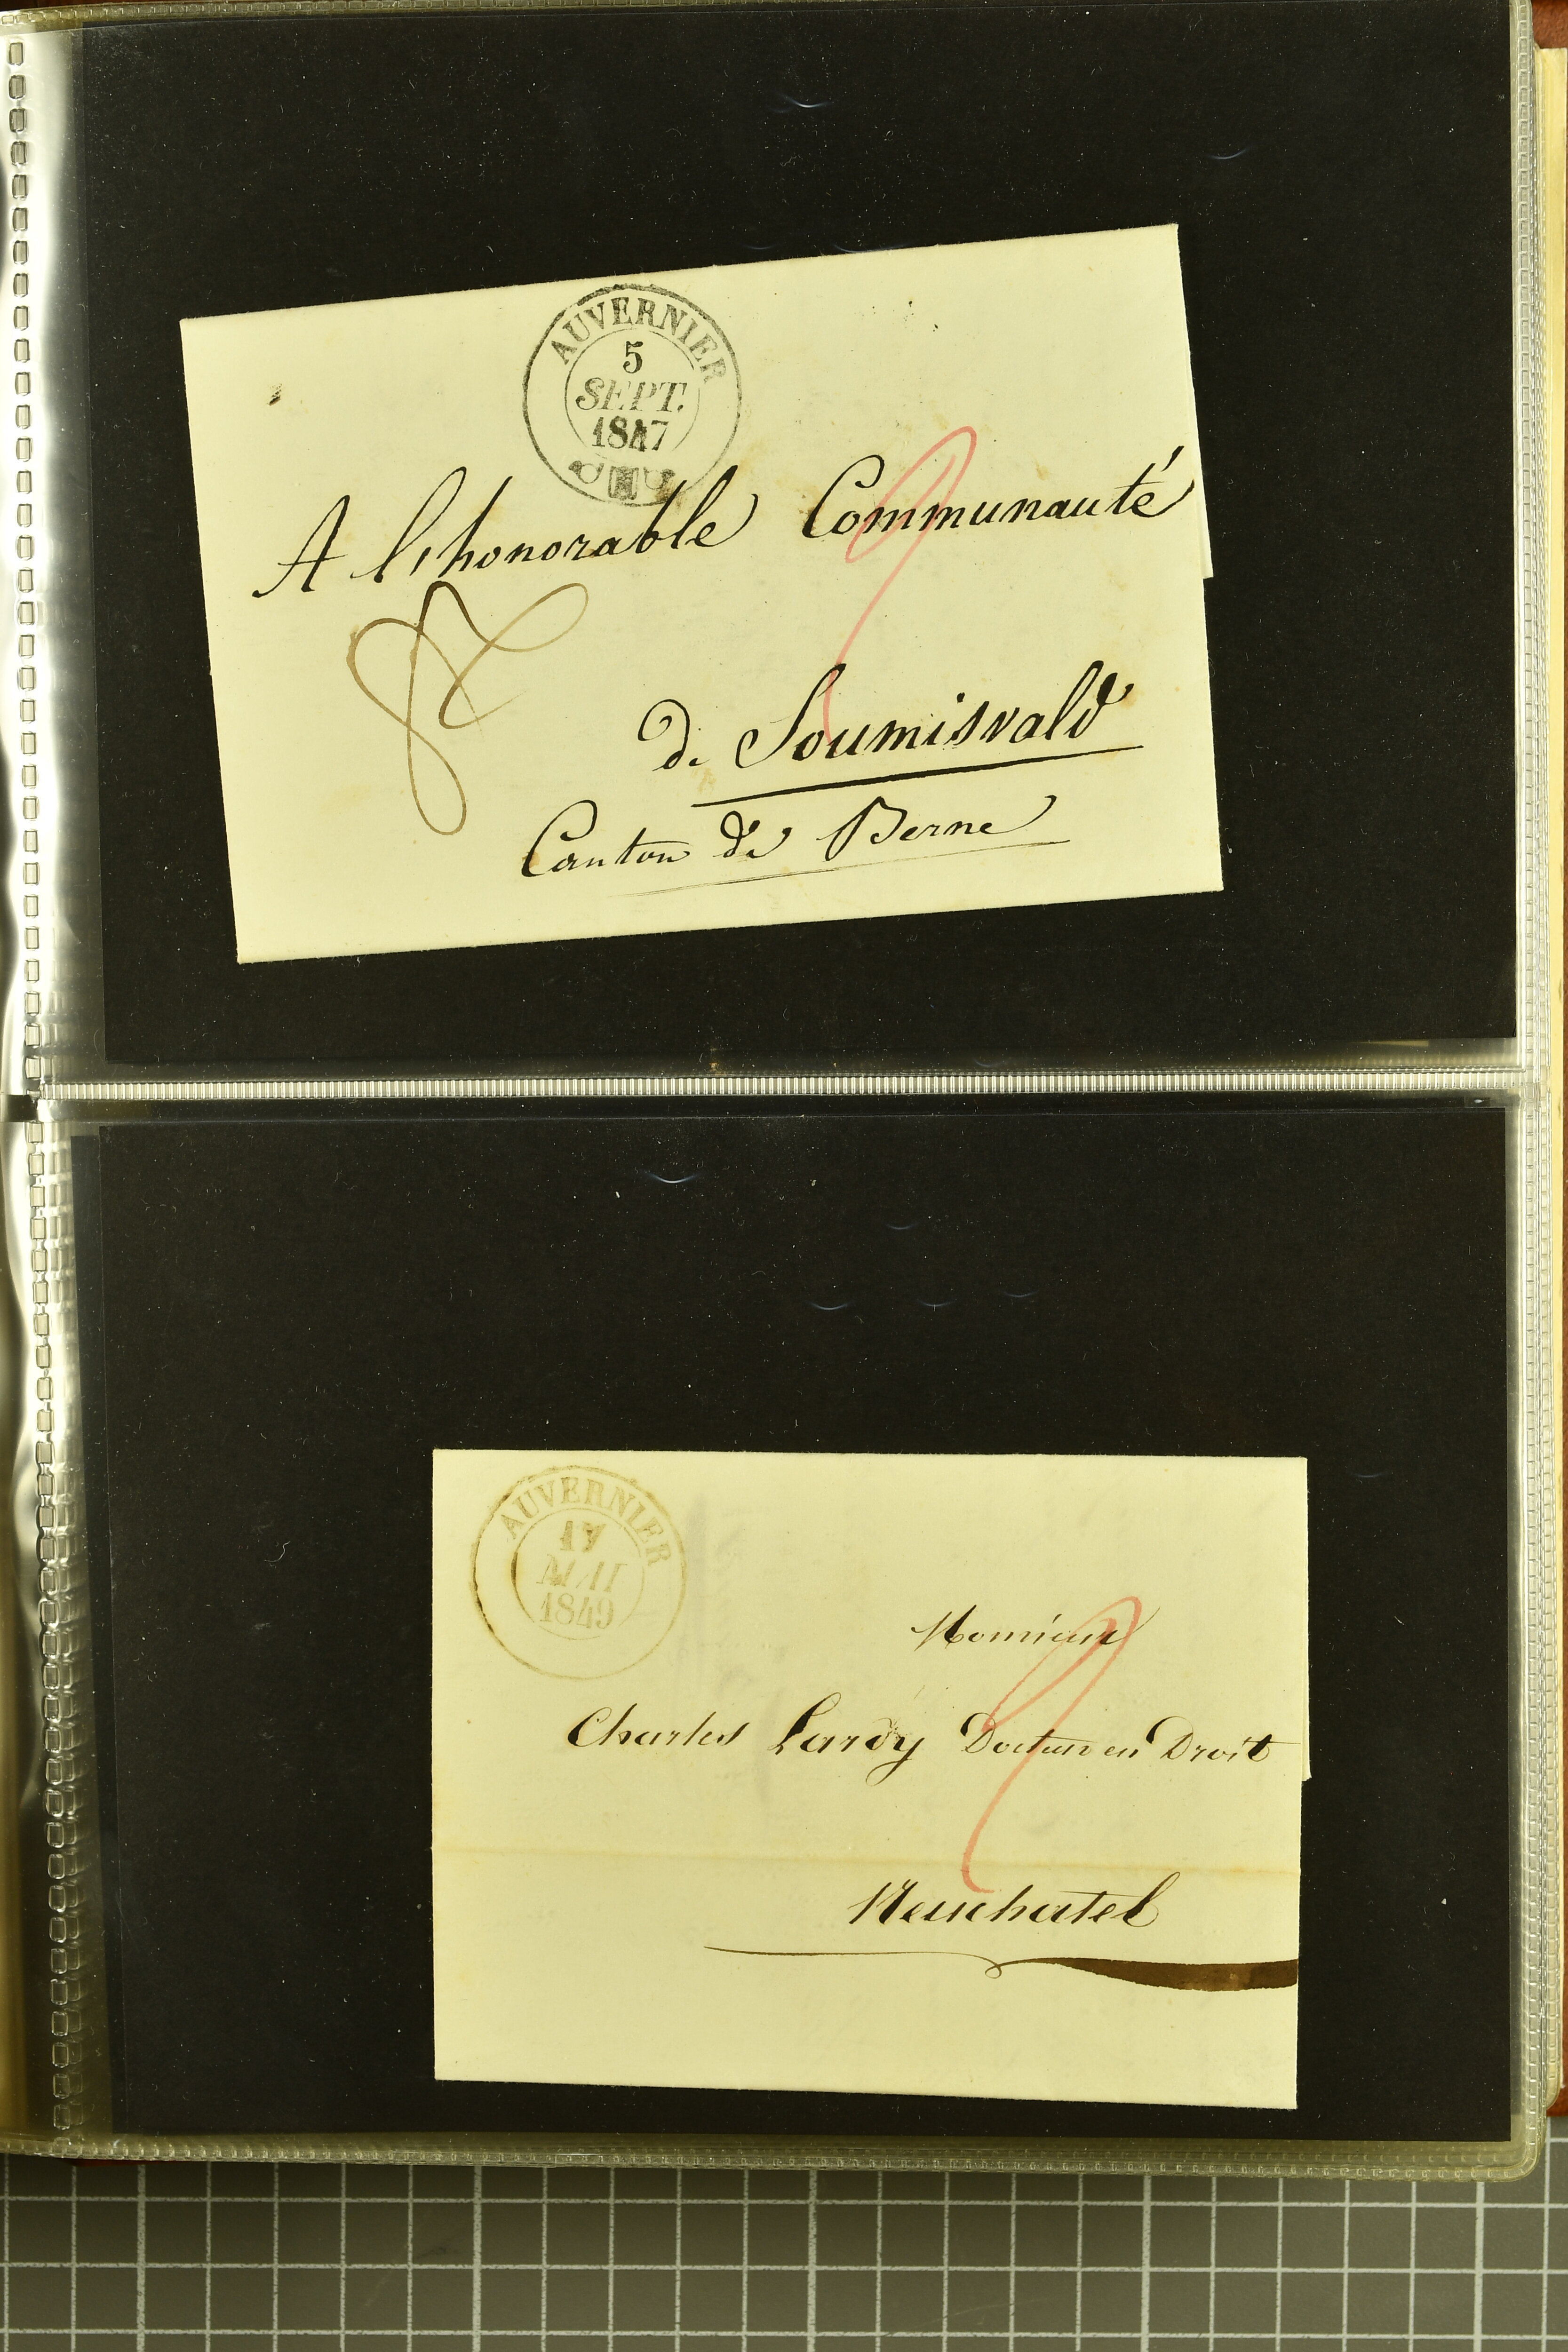 AUVERNIER
5
SEPT.
1847
A l'honorable Communauté
de Soumisvald
Canton de Berne
AUVERNIER
17
MAI
1849
Monsieur
Charles Lardy Docteur en Droit
Neuchatel